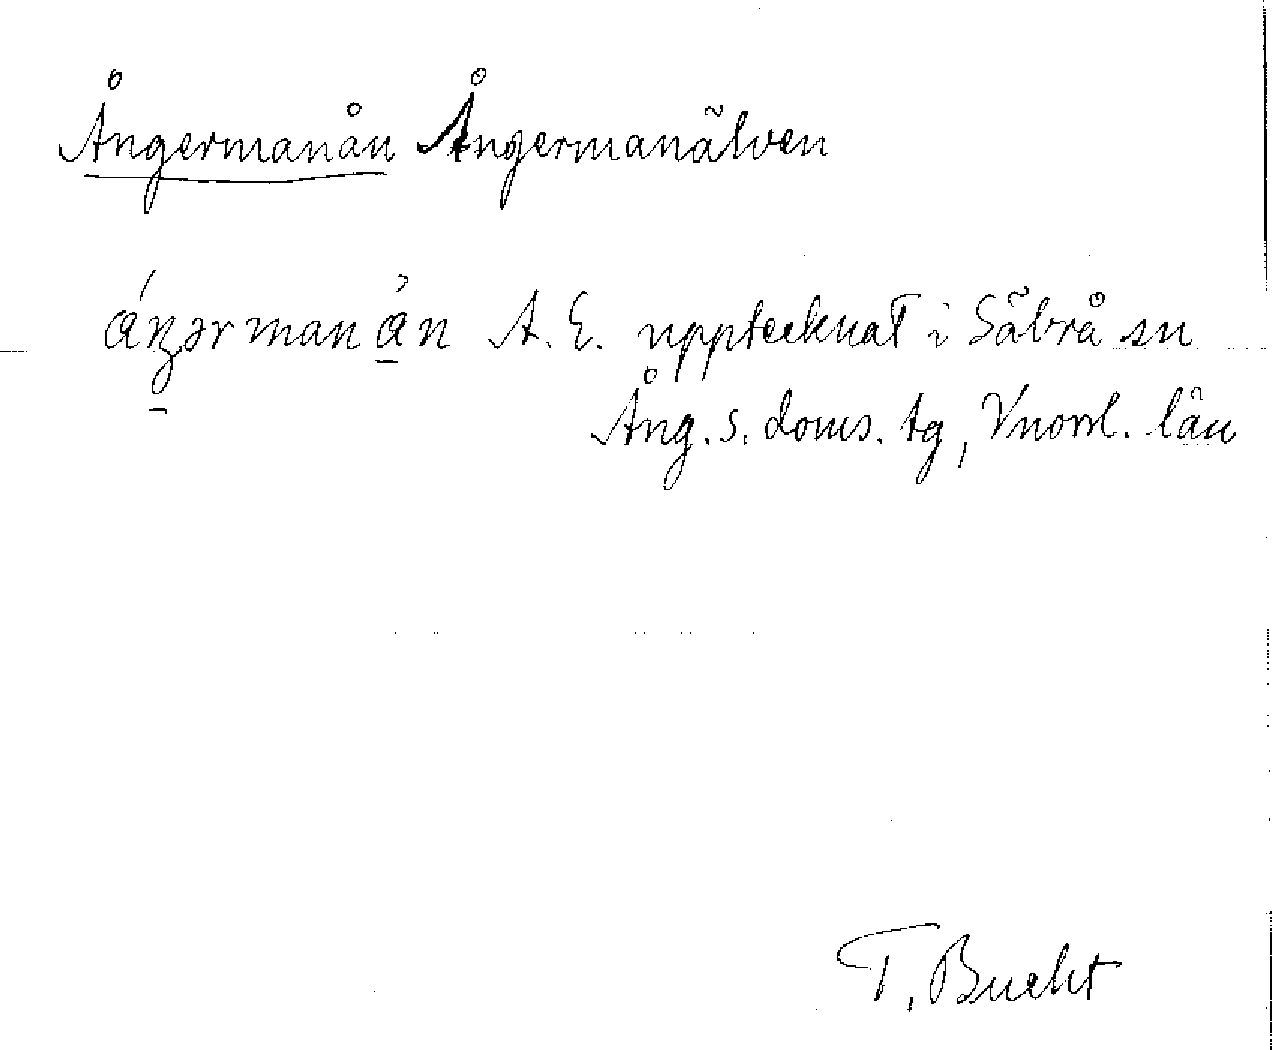 Ångermanån Ångermanälven
ɑ́ŋərmanɑ̀n A. E. upptecknat i Säbrå sn
Ång. s. doms. tg, Vnorrl. län
T. Bucht